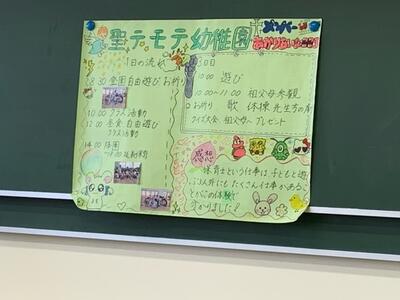 聖テモテ幼稚園
メンバー
1日の流れ
8:30 登園自由遊び お祈り
10:00 クラス活動
12:00 昼食 自由遊び
クラス活動
14:00 降園
3日目
10:00 遊び
10:00〜11:00 祖父母参観
お祈り 歌 体操 先生方の
クイズ大会 祖父母へプレゼント
感想
保育士という仕事は子どもと遊
ぶ以外にもたくさん仕事があるこ
とがこの体験で
分かりました!